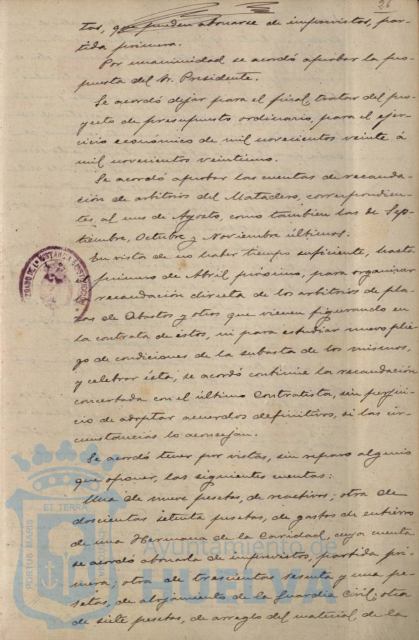 26
tas, que pueden abonarse de imprevistos, par-
tida primera.
Por unanimidad se acordó aprobar la pro-
puesta del Sr. Presidente.
Se acordó dejar para el final, tratar del pro-
yecto de presupuesto ordinario, para el ejer-
cicio económico de mil novecientos veinte á
mil novecientos veintiuno.
Se acordó aprobar las cuentas de recauda-
ción de arbitrios del Matadero, correspondien-
tes, al mes de Agosto, como tambien las de Sep-
tiembre, Octubre y Noviembre últimos.
En vista de no haber tiempo suficiente, hasta
primero de Abril próximo, para organizar
recaudación directa de los arbitrios de pla-
zas de Abastos y otros que vienen figurando en
la contrata de éstos, ni para estudiar nuevo plie-
go de condiciones de la subasta de los mismos,
y celebrar ésta, se acordó continúe la recaudación
concertada con el último Contratista, sin perjui-
cio de adoptar acuerdos definitivos, si las cir-
cunstancias lo aconsejan.
Se acordó tener por vistas, sin reparo alguno
que oponer, las siguientes cuentas:
Una de nueve pesetas, de reactivos; otra de
doscientas setenta pesetas, de gastos de entierro
de una Hermana de la Caridad, cuya cuenta
se acordó abonarla de imprevistos, partida pri-
mera; otra de trescientas sesenta y una pe-
setas, de alojamiento de la Guardia Civil; otra
de siete pesetas, de arreglo del material de la
PORTUS MARIS
ET TERRAE
Ayuntamiento de
HUELVA